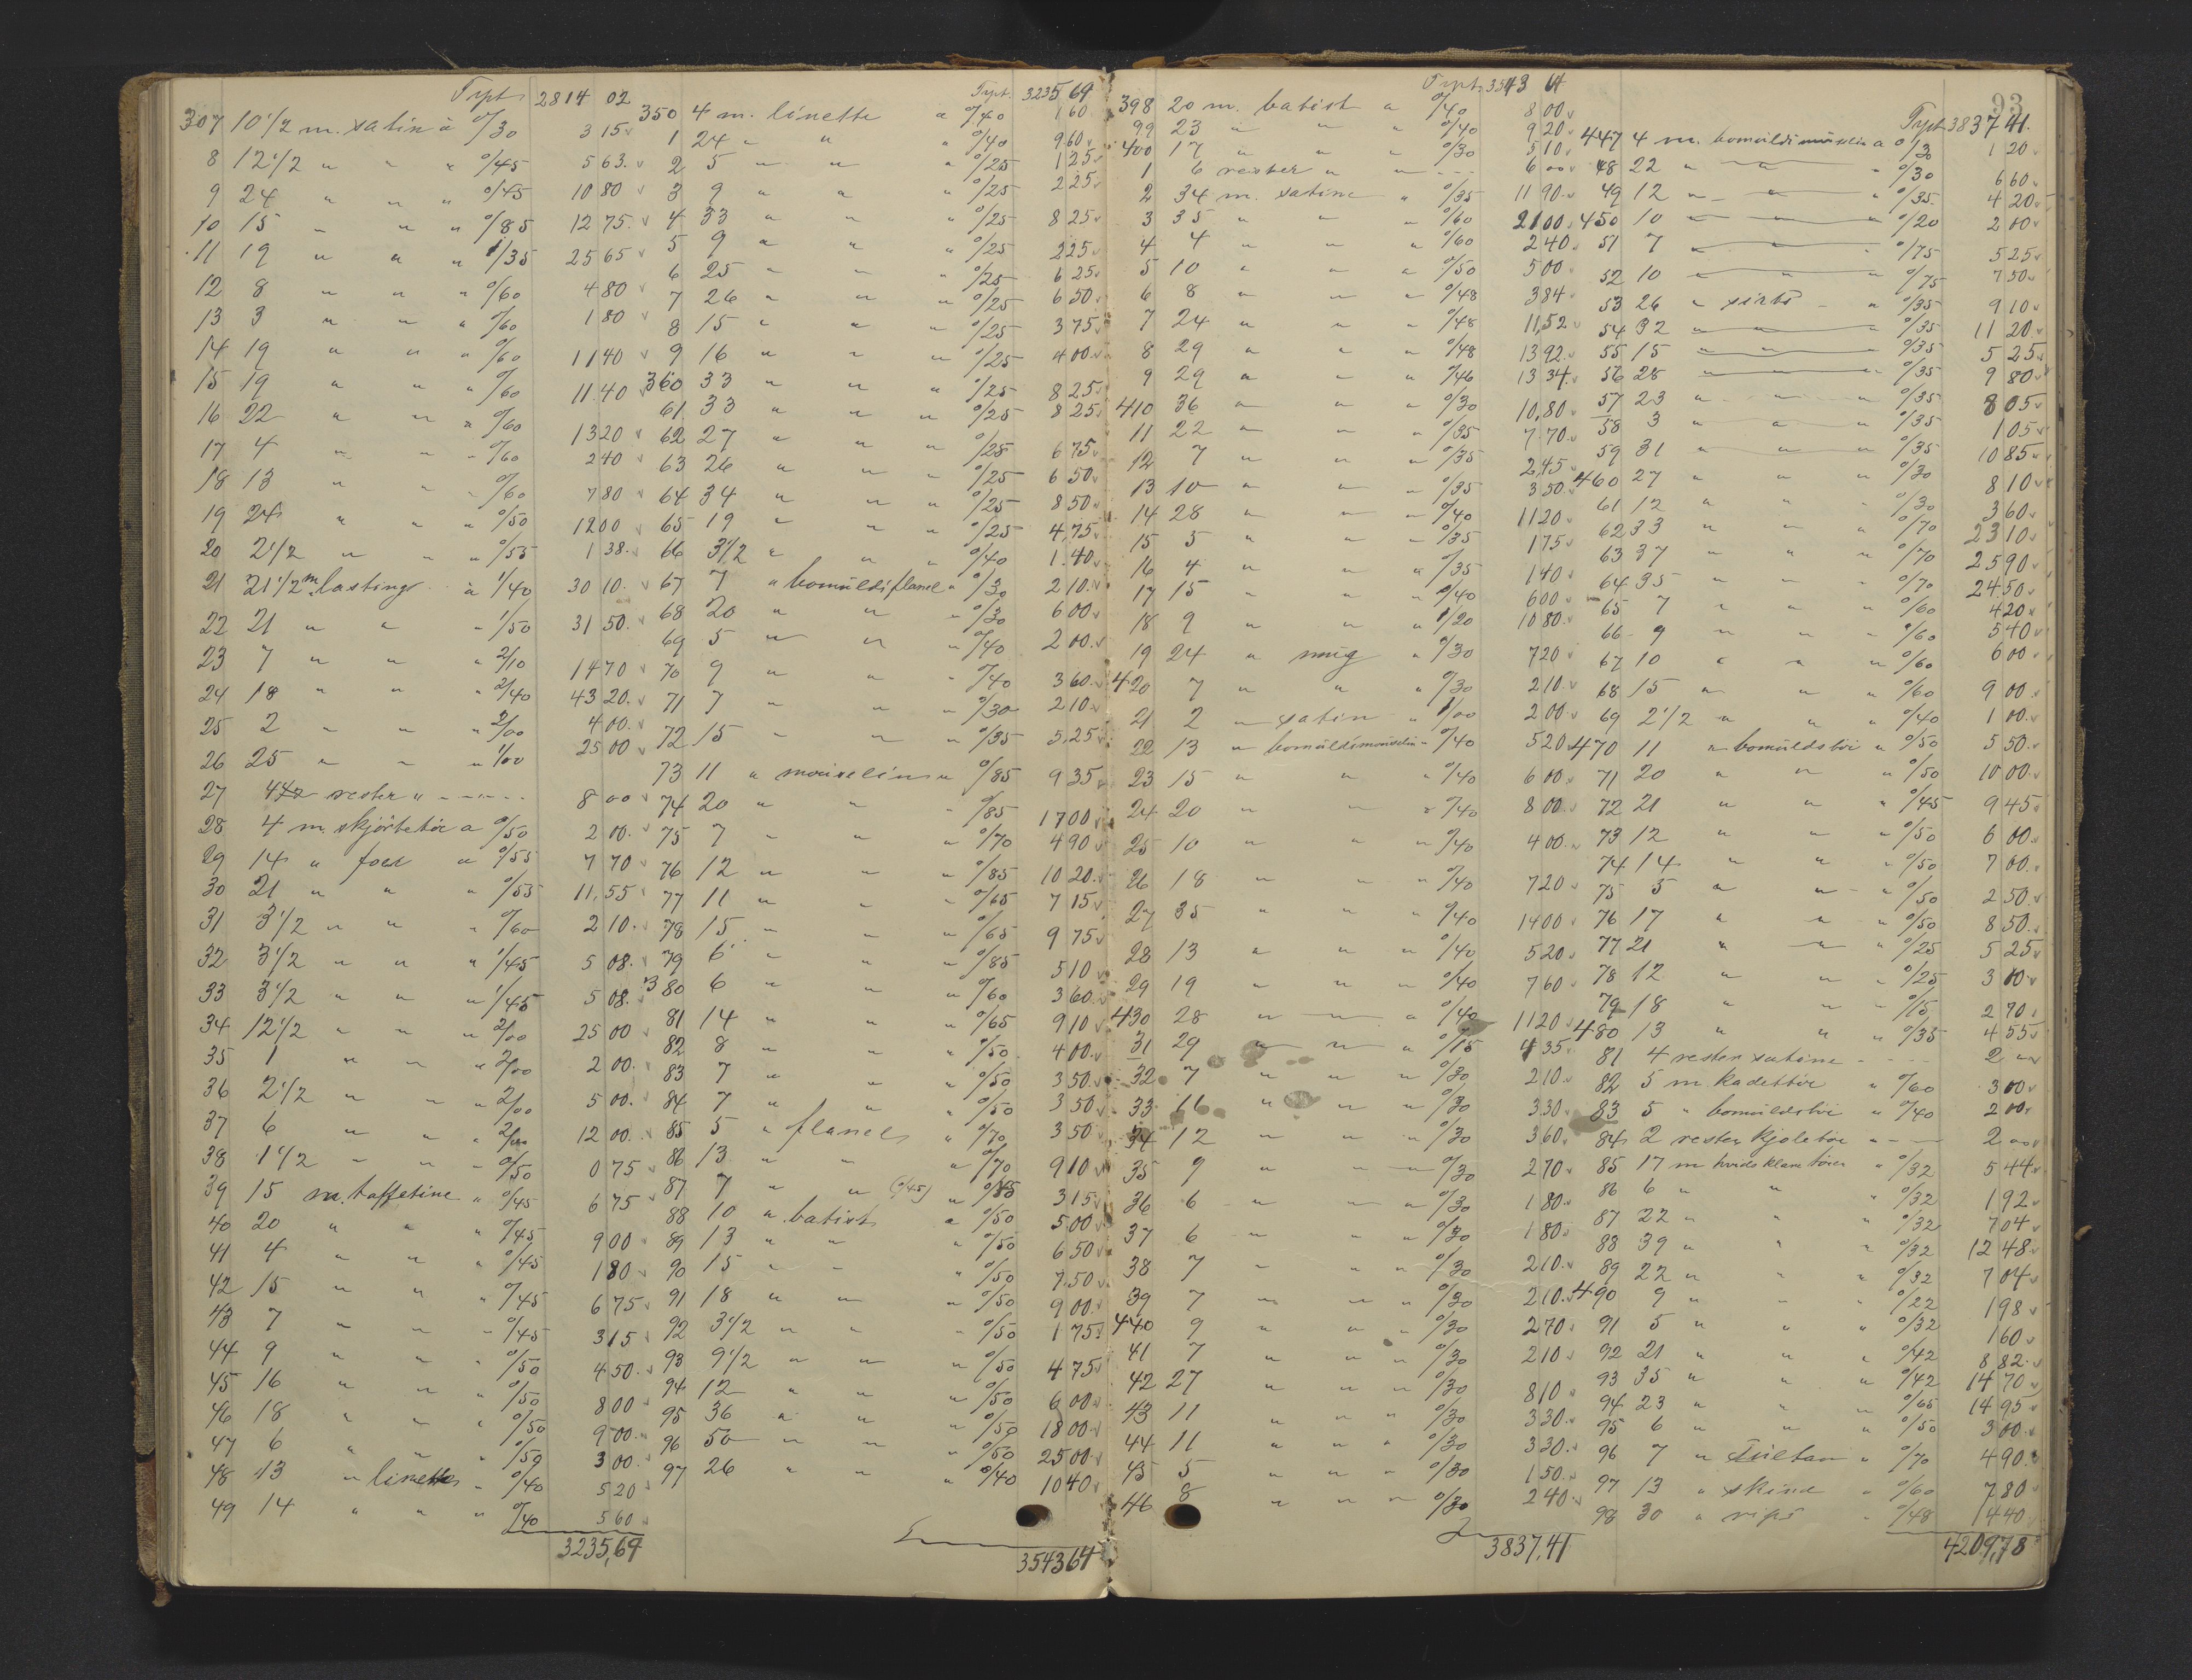 Trpt. 2814 02
307 10 1/2 m. satin à 0/30 3 15
8 12 1/2 " " " 0/45 5 63
9 24 " " " 0/45 10 80
10 15 " " " 0/85 12 75
11 19 " " " 1/35 25 65
12 8 " " " 0/60 4 80
13 3 " " " 0/60 1 80
14 19 " " " 0/60 11 40
15 19 " " " 0/60 11.40
16 22 " " " 0/60 13 20
17 4 " " " 0/60 2 40
18 13 " " " 0/60 7 80
19 24 " " " 0/50 12 00
20 2 1/2 " " " 0/55 1 38
21 21 1/2 m. lastings à 1/40 30 10
22 21 " " " 1/50 31 50
23 7 " " " 2/10 14 70
24 18 " " " 2/40 43 20
25 2 " " " 2/00 4 00
26 25 " " " 1/00 25 00
27 rester " - - - 8 00
28 4 m. skjörtetöi a 0/50 2 00
29 14 " foer a 0/55 7 70
30 21 " " " 0/55 11,55
31 3 1/2 " " " 0/60 2 10
32 3 1/2 " " " 1/45 5 08
33 3 1/2 " " " 1/45 5 08
34 12 1/2 " " " 2/00 25 00
35 1 " " " 2/00 2 00
36 2 1/2 " " " 2/00 5 00
37 6 " " " 2/00 12 00
38 1 1/2 " " " 0/50 0 75
39 15 m. taffetine " 0/45 6 75
40 20 " " " 0/45 9 00
41 4 " " " 0/45 1 80
42 15 " " " 0/45 6 75
43 7 " " " 0/45 3 15
44 9 " " " 0/50 4 50
45 16 " " " 0/50 8 00
46 18 " " " 0/50 9 00
47 6 " " " 0/50 3 00
48 13 " linette " 0/40 5 20
49 14 " " " 0/40 5 60
3235,69
Trpt. 3235 69
350 4 m. linette a 0/40 1 60
1 24 " " " 0/40 9 60
2 5 " " " 0/25 1 25
3 9 " " " 0/25 2 25
4 33 " " " 0/25 8 25
5 9 " " " 0/25 2 25
6 25 " " " 0/25 6 25
7 26 " " " 0/25 6 50
8 15 " " " 0/25 3 75
9 16 " " " 0/25 4 00
360 33 " " " 0/25 8 25
61 33 " " " 0/25 8 25
62 27 " " " 0/25 6 75
63 26 " " " 0/25 6 50
64 34 " " " 0/25 8 50
65 19 " " " 0/25 4,75
66 3 1/2 " " " 0/40 1.40
67 7 " bomuldsflanel " 0/30 2 10
68 20 " " " 0/30 6 00
69 5 " " " 0/40 2 00
70 9 " " " 0/40 3 60
71 7 " " " 0/30 2 10
72 15 " " " 0/35 5,25
73 11 " mouselins " 0/85 9 35
74 20 " " " 0/85 17 00
75 7 " " " 0/70 4 90
76 12 " " " 0/85 10 20
77 11 " " " 0/65 7 15
78 15 " " " 0/65 9 75
79 6 " " " 0/85 5 10
380 6 " " " 0/60 3 60
81 14 " " " 0/65 9 10
82 8 " " " 0/50 4 00
83 7 " " " 0/50 3 50
84 7 " " " 0/50 3 50
85 5 " flanels " 0/70 3 50
86 13 " " " 0/70 9 10
87 7 " " (0/45) " 3 15
88 10 " batist a 0/50 5 00
89 13 " " " 0/50 6 50
90 15 " " " 0/50 7,50
91 18 " " " 0/50 9 00
92 3 1/2 " " " 0/50 1 75
93 9 1/2 " " " 0/50 4 75
94 12 " " " 0/50 6 00
95 36 " " " 0/50 18 00
96 50 " " " 0/50 25 00
97 26 " " " 0/40 10 40
3543 64
Trpt. 3543 64
398 20 m. batist a 0/40 8 00
99 23 " " " 0/40 9 20
400 17 " " " 0/30 5 10
1 6 rester " " - - - 6 00
2 34 m. satine " 0/35 11 90
3 35 " " " 0/60 21 00
4 4 " " " 0/60 2 40
5 10 " " " 0/50 5 00
6 8 " " " 0/48 3 84
7 24 " " " 0/48 11,52
8 29 " " " 0/48 13 92
9 29 " " " 0/46 13 34
410 36 " " " 0/30 10,80
11 22 " " " 0/35 7.70
12 7 " " " 0/35 2,45
13 10 " " " 0/35 3 50
14 28 " " " 0/40 11 20
15 5 " " " 0/35 1 75
16 4 " " " 0/35 1 40
17 15 " " " 0/40 6 00
18 9 " " " 1/20 10 80
19 24 " mug " 0/30 7 20
420 7 " " " 0/30 2 10
21 2 " satin " 1/00 2 00
22 13 " bomuldsmouselin " 0/40 5 20
23 15 " " " 0/40 6 00
24 20 " " " 0/40 8 00
25 10 " " " 0/40 4 00
26 18 " " " 0/40 7 20
27 35 " " " 0/40 14 00
28 13 " " " 0/40 5 20
29 19 " " " 0/40 7 60
430 28 " " " 0/40 11 20
31 29 " " " 0/15 4 35
32 7 " " " 0/30 2 10
33 11 " " " 0/30 3 30
34 12 " " " 0/30 3 60
35 9 " " " 0/30 2 70
36 6 " " " 0/30 1 80
37 6 " " " 0/30 1 80
38 7 " " " 0/30 2 10
39 7 " " " 0/30 2 10
440 9 " " " 0/30 2 70
41 7 " " " 0/30 2 10
42 27 " " " 0/30 8 10
43 11 " " " 0/30 3 30
44 11 " " " 0/30 3 30
45 5 " " " 0/30 1 50
46 8 " " " 0/30 2 40
3837,41
93
Trpt. 3837 41
447 4 m. bomuldsmuselin a 0/30 1 20
48 22 " " " 0/30 6 60
49 12 " " " 0/35 4 20
450 10 " " " 0/20 2 00
51 7 " " " 0/75 5 25
52 10 " " " 0/75 7 50
53 26 " sirts " 0/35 9 10
54 32 " " " 0/35 11 20
55 15 " " " 0/35 5 25
56 28 " " " 0/35 9 80
57 23 " " " 0/35 8 05
58 3 " " " 0/35 1 05
59 31 " " " 0/35 10 85
460 27 " " " 0/30 8 10
61 12 " " " 0/30 3 60
62 33 " " " 0/70 23 10
63 37 " " " 0/70 25 90
64 35 " " " 0/70 24 50
65 7 " " " 0/60 4 20
66 9 " " " 0/60 5 40
67 10 " " " 0/60 6 00
68 15 " " " 0/60 9 00
69 2 1/2 " " " 0/40 1 00
470 11 " bomuldstöi " 0/50 5 50
71 20 " " " 0/50 10 00
72 21 " " " 0/45 9 45
73 12 " " " 0/50 6 00
74 14 " " " 0/50 7 00
75 5 " " " 0/50 2 50
76 17 " " " 0/50 8 50
77 21 " " " 0/25 5 25
78 12 " " " 0/25 3 00
79 18 " " " 0/15 2 70
480 13 " " " 0/35 4 55
81 4 rester satine - - - 2 00
82 5 m. kadettöi " 0/60 3 00
83 5 " bomuldstöi " 0/40 2 00
84 2 rester kjoletöi " - - 2 00
85 17 m hvids klare töier " 0/32 5 44
86 6 " " " 0/32 1 92
87 22 " " " 0/32 7 04
88 39 " " " 0/32 12 48
89 22 " " " 0/32 7 04
490 9 " " " 0/22 1 98
91 5 " " " 0/32 1 60
92 21 " " " 0/42 8 82
93 35 " " " 0/42 14 70
94 23 " " " 0/65 14 95
95 6 " " " 0/50 3 00
96 7 " " 0/70 4 90
97 13 " " 0/60 7 80
98 30 " rips " 0/48 14 40
4209,78